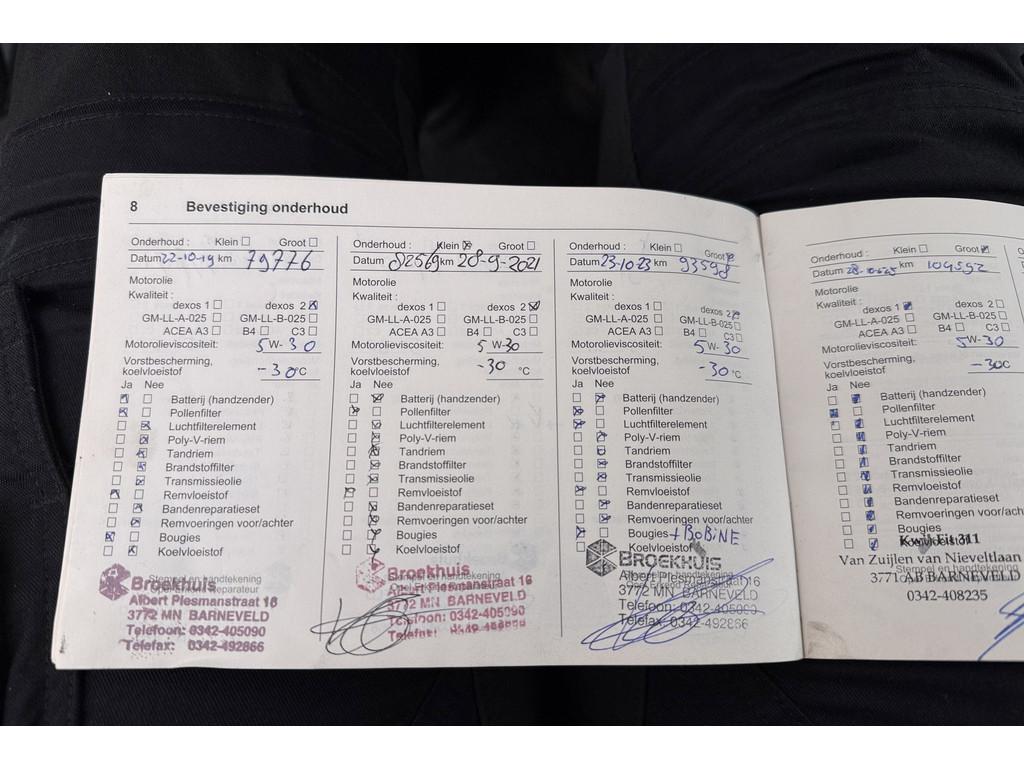 8 Bevestiging onderhoud
Onderhoud : Klein Groot
Datum 22-10-19 km 79776
Motorolie
Kwaliteit :
dexos 1 dexos 2
GM-LL-A-025 GM-LL-B-025
ACEA A3 B4 C3
Motorolieviscositeit: 5 W- 30
Vorstbescherming,
koelvloeistof -30°C
Ja Nee
Batterij (handzender)
Pollenfilter
Luchtfilterelement
Poly-V-riem
Tandriem
Brandstoffilter
Transmissieolie
Remvloeistof
Bandenreparatieset
Remvoeringen voor/achter
Bougies
Koelvloeistof
Stempel en handtekening
Opel Erkend Reparateur
Broekhuis
Albert Plesmanstraat 16
3772 MN BARNEVELD
Telefoon: 0342-405090
Telefax: 0342-492866
Onderhoud : Klein Groot
Datum 82569 km 28-9-2021
Motorolie
Kwaliteit :
dexos 1 dexos 2
GM-LL-A-025 GM-LL-B-025
ACEA A3 B4 C3
Motorolieviscositeit: 5 W-30
Vorstbescherming,
koelvloeistof -30 °C
Ja Nee
Batterij (handzender)
Pollenfilter
Luchtfilterelement
Poly-V-riem
Tandriem
Brandstoffilter
Transmissieolie
Remvloeistof
Bandenreparatieset
Remvoeringen voor/achter
Bougies
Koelvloeistof
Stempel en handtekening
Broekhuis
Albert Plesmanstraat 16
3772 MN BARNEVELD
Telefoon: 0342-405090
Onderhoud : Klein Groot
Datum 23-10-23 km 93598
Motorolie
Kwaliteit :
dexos 1 dexos 2
GM-LL-A-025 GM-LL-B-025
ACEA A3 B4 C3
Motorolieviscositeit: 5 W-30
Vorstbescherming,
koelvloeistof -30 °C
Ja Nee
Batterij (handzender)
Pollenfilter
Luchtfilterelement
Poly-V-riem
Tandriem
Brandstoffilter
Transmissieolie
Remvloeistof
Bandenreparatieset
Remvoeringen voor/achter
Bougies + BOBINE
Koelvloeistof
BROEKHUIS
Albert Plesmanstraat 16
3772 MN BARNEVELD
Telefoon: 0342-405090
Telefax: 0342-492866
Onderhoud : Klein Groot
Datum km 104592
Motorolie
Kwaliteit :
dexos 1 dexos 2
GM-LL-A-025 GM-LL-B-025
ACEA A3 B4 C3
Motorolieviscositeit: 5W-30
Vorstbescherming,
koelvloeistof -30C
Ja Nee
Batterij (handzender)
Pollenfilter
Luchtfilterelement
Poly-V-riem
Tandriem
Brandstoffilter
Transmissieolie
Remvloeistof
Bandenreparatieset
Remvoeringen voor/ach
Bougies
Koelvloeistof
Kwik Fit 311
Van Zuijlen van Nieveltlaan
Stempel en handtekening
3771 AB BARNEVELD
0342-408235